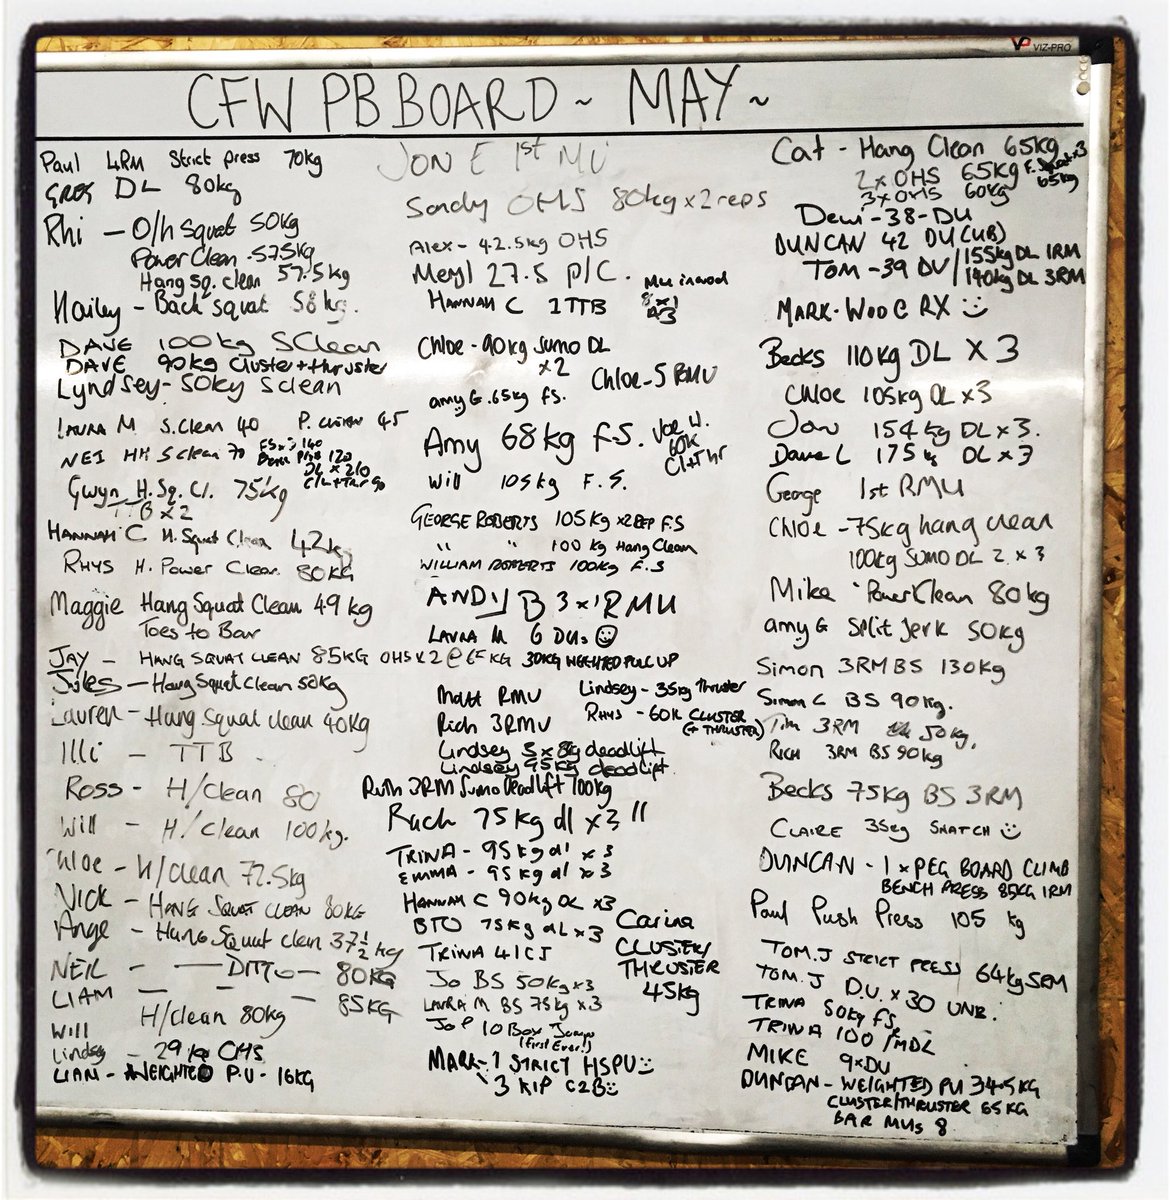 VIZ-PRO
CFW PB BOARD ~ MAY ~
Paul 4RM Strict press 70kg
GREG DL 80kg
Rhi - O/h Squat 50kg
Power Clean - 57.5kg
Hang sq. clean 57.5kg
Hailey - Back squat 58kg.
DAVE 100kg SClean
DAVE 90kg Cluster + thruster
Lyndsey - 50kg Sclean
LAURA M S.Clean 40 P. Clean 45
NEI HH S clean 70
Gwyn H. Sq. Cl. 75kg
TTB x 2
HANNAH C H. Squat Clean 42kg
RHYS H. Power Clean 80KG
Maggie Hang Squat Clean 49 kg
Toes to Bar
JAY - HANG SQUAT CLEAN 85KG OHS x 2 @ 65KG 30KG WEIGHTED PULL UP
Jules - Hang Squat Clean 50kg
Lauren - Hang Squat clean 40kg
Illi - TTB
Ross - H/Clean 80
Will - H./Clean 100kg.
Chloe - H/clean 72.5kg
NICK - HANG SQUAT CLEAN 80KG
Ange - Hang Squat clean 37½kg
NEIL - - DITTO - 80KG
LIAM - - - 85KG
Will H/clean 80kg
Lindsey - 29kg OHS
LIAN - WEIGHTED P.U - 16KG
JON E 1st MU
Sandy OHS 80kg x 2 reps
Alex - 42.5kg OHS
Meryl 27.5 P/C.
HANNAH C 1 TTB
Chloe - 90kg SUMO DL
x2
Chloe - 5 RMU
amy G. 65kg FS.
Amy 68kg F.S.
Joe W.
60K
Cl+Thr
Will 105kg F.S.
GEORGE ROBERTS 105Kg x2REP F.S
" " 100 Kg Hang Clean
WILLIAM ROBERTS 100KG F.S
ANDY B 3 x 1 RMU
LAURA M 6 DUs ☺
Matt RMU
Rich 3RMU
Lindsey - 35kg Thruster
RHYS - 60K CLUSTER
(+ THRUSTER)
Lindsey 95kg deadlift
Ruth 3RM Sumo Deadlift 100kg
Rach 75kg dl x3 "
TRINA - 95kg dl x 3
EMMA - 95kg dl x 3
HANNAH C 90kg DL x3
BTO 75kg dL x 3
TRINA 41
Jo BS 50kg x3
LAURA M BS 75kg x 3
Jo P 10 Box Jumps
(first Ever!)
MARK - 1 STRICT HSPU ☺
3 KIP C2B ☺
Carina
CLUSTER/
THRUSTER
45kg
Cat - Hang Clean 65kg
2 x OHS 65kg F. Squat x3
65kg
3 x OHS 60kg
Dewi - 38 - DU
DUNCAN 42 DU (UB)
TOM - 39 DU / 155kg DL 1RM
140kg DL 3RM
MARK - WOD C RX ☺
Becks 110kg DL x 3
Chloe 105kg DL x3
Jon 154kg DL x 3.
Dave L 175kg DL x 3
George 1st RMU
Chloe - 75kg hang clean
100kg SUMO DL 2 x 3
Mike Power Clean 80kg
amy G Split Jerk 50kg
Simon 3RM BS 130kg
Simon C BS 90kg.
Tim 3RM 50kg.
RICH 3RM BS 90kg
Becks 75kg BS 3RM
CLAIRE 35kg SNATCH ☺
DUNCAN - 1 x PEG BOARD CLIMB
BENCH PRESS 85KG 1RM
Paul Push Press 105 kg
TOM.J STRICT PRESS 64kg 5RM
TOM.J D.U. x 30 UNB.
TRINA 50kg FS.
TRINA 100
MIKE 9xDU
DUNCAN - WEIGHTED PU 34.5KG
CLUSTER/THRUSTER 65KG
BAR MUs 8